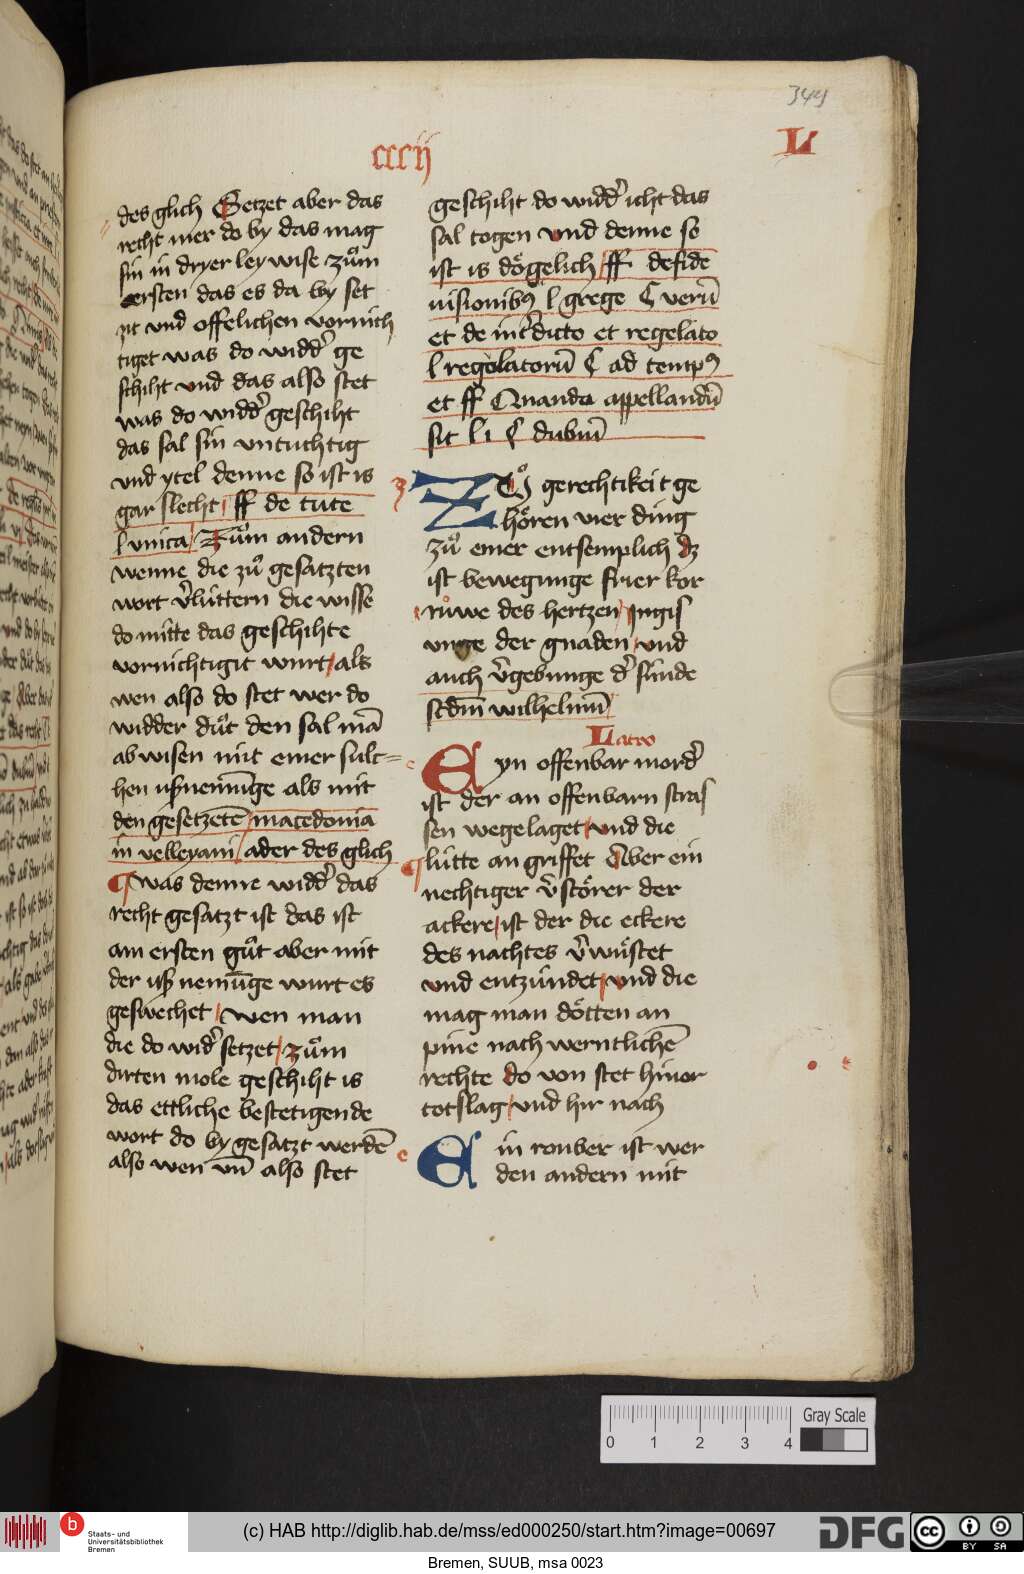 344
cccij
L
des glich Setzet aber das
recht mer do by das mag
sin in dryer ley wise zuͦm
ersten das es da by set
zit vnd offelichen vornich
tiget was do widd' ge
schiht vnd das also stet
was do widd' geschiht
das sal sin vntuchtig
vnd ytel denne so ist is
gar slecht ff de tute
l vnica Zuͦm andern
wenne die zuͦ gesatzten
wort v'lúttern die wisse
do mitte das geschihte
vornichtigit wurt als
wen also do stet wer do
widder duͦt den sal mā
ab wisen mit einer sulc=
hen uſznemūge als mit
den gesetzetē macedonia
in velleyani ader des glich
was denne widd' das
recht gesatzt ist das ist
am ersten guͦt aber mit
der uſz nemūge wurt es
geswechet wen man
die do wid' setzet zuͦm
dirten mole geschiht is
das ettliche bestetigende
wort do by gesatzt werdē
also wen vn̄ also stet
geschiht do widd' icht das
sal togen vnd denne so
ist is dögelich ff defide
uisionib9 l grege C verū
et de int'dicto et regelato
l regolatorū C ad temp9
et ff Quanda appellandū
sit l i C dubiū
ZUͦ gerechtikeit ge
hören vier ding
zuͦ einer entsemplich dz
ist bewegunge frier kor
ruͦwe des hertzen ingis
unge der gnaden vnd
auch v'gebunge d' súnde
scdm̄ wilhelmū
Latro
Eyn offenbar mord'
ist der an offenbarn stras
sen wegelaget vnd die
lútte an griffet Aber ein
nechtiger v'störer der
ackere ist der die eckere
des nachtes v'wústet
vnd entzúndet vnd die
mag man dötten an
pine nach werntlichē
rechte do von stet hinor
totslag vnd hir nach
Ein rouber ist wer
den andern mit
0 1 2 3 4
Gray Scale
Staats- und
Universitätsbibliothek
Bremen
(c) HAB http://diglib.hab.de/mss/ed000250/start.htm?image=00697
DFG
cc BY SA
Bremen, SUUB, msa 0023